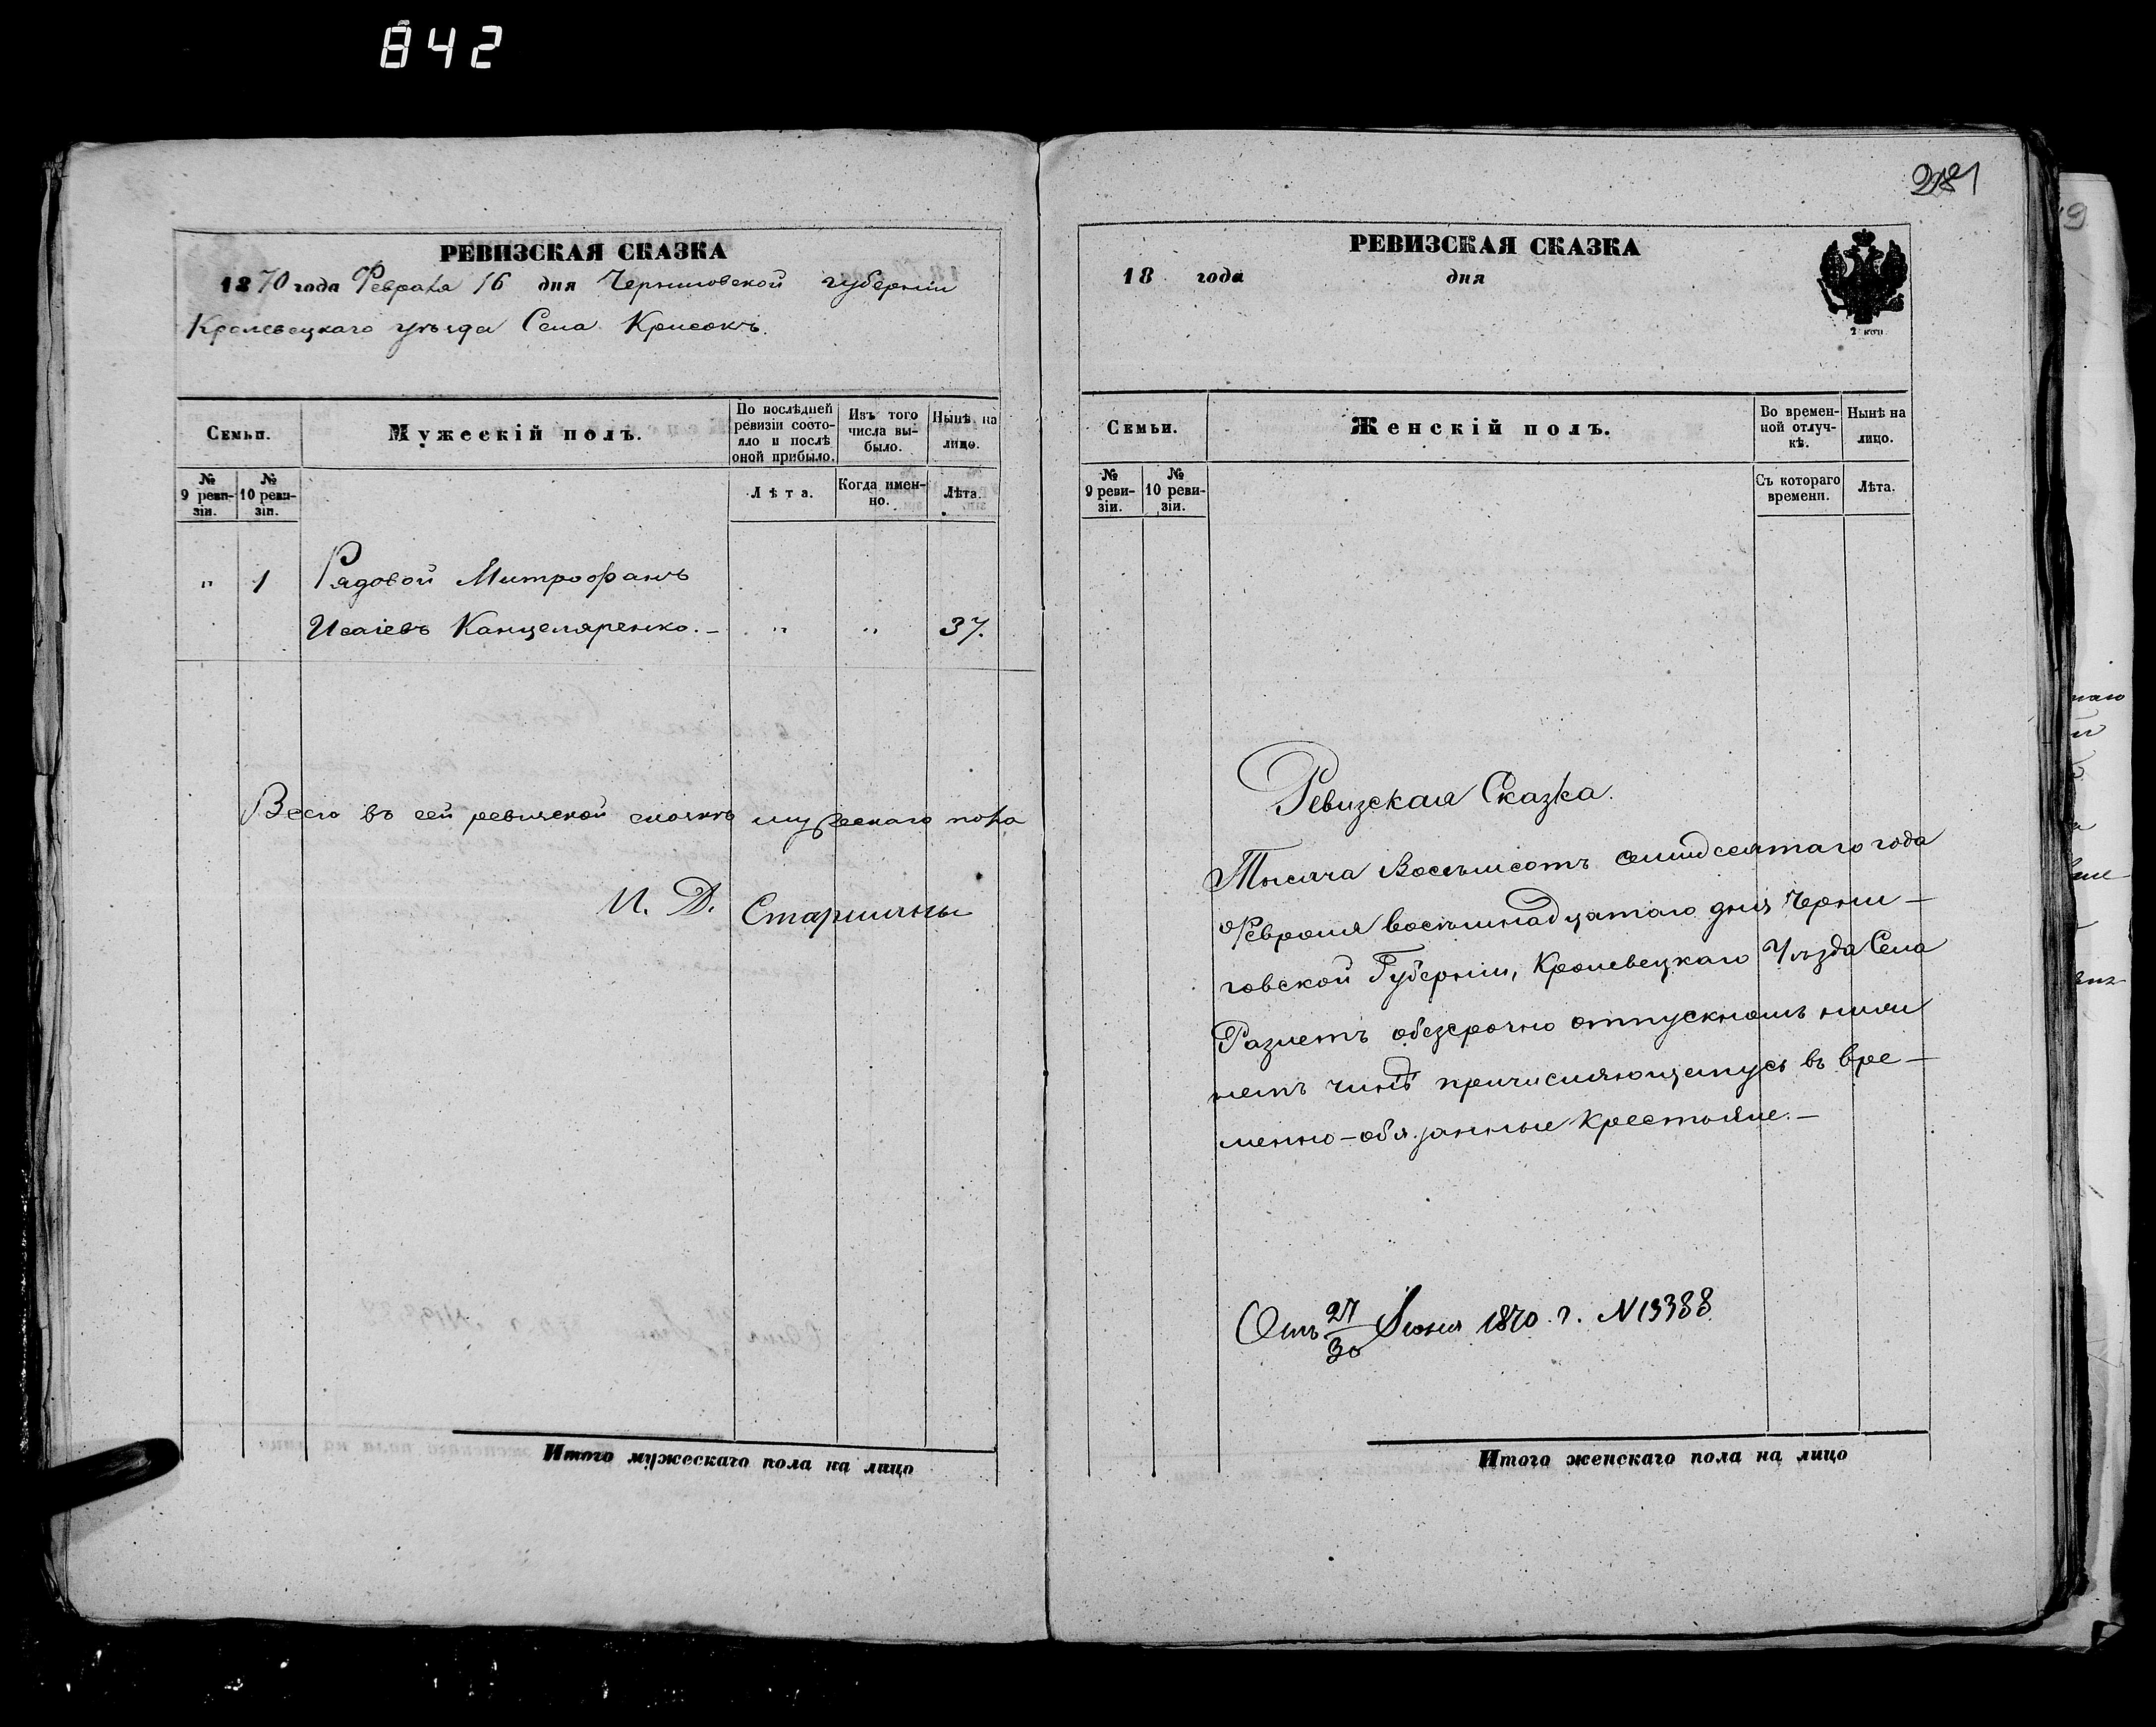 842
РЕВИЗСКАЯ СКАЗКА
1870 года Февраля 16 дня Черниговской губерніи
Кролевецкаго уѣзда Села Крисокъ.
Семьи.
Мужескій полъ.
По послѣдней ревизіи состояло и послѣ оной прибыло.
Изъ того числа выбыло.
Нынѣ на лицо.
№ 9 ревизіи.
№ 10 ревизіи.
Лѣта.
Когда именно.
Лѣта.
" 1 Рядовой Митрофанъ
Исаіевъ Канцеляренко.— " " 37.
Всего въ сей ревизской сказкѣ мужескаго пола
И. Д. Старшины
Итого мужескаго пола на лицо
281
РЕВИЗСКАЯ СКАЗКА
18 года дня
2 коп.
Семьи.
Женскій полъ.
Во временной отлучкѣ.
Нынѣ на лицо.
№ 9 ревизіи.
№ 10 ревизіи.
Съ котораго времени.
Лѣта.
Ревизская Сказка.
Тысяча Восемьсотъ семидесятаго года
Февраля восемнадцатаго дня Черни-
говской Губерніи, Кролевецкаго Уѣзда Села
обезсрочно отпускномъ ниж
немъ чинѣ причисляющемуся въ вре-
менно-обязанные Крестьяне.—
Отъ 27/30 Іюня 1870. г. N 13388
Итого женскаго пола на лицо